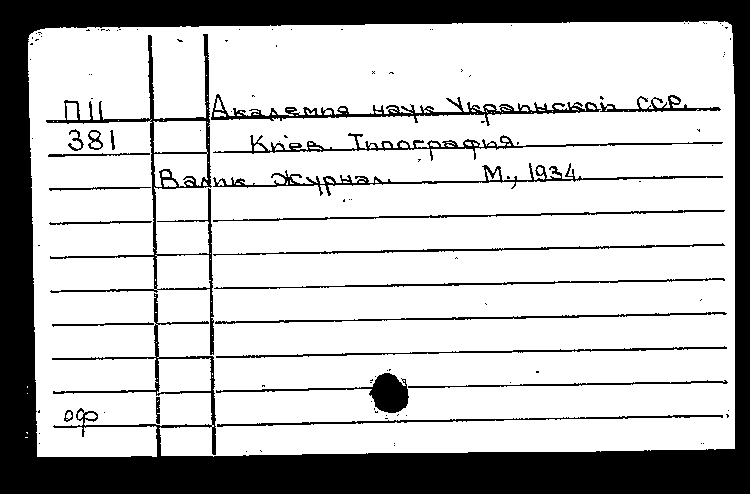 П11 Академия наук Украинской ССР.
381 Киев. Типография.
Валик. Журнал. М., 1934.
оф